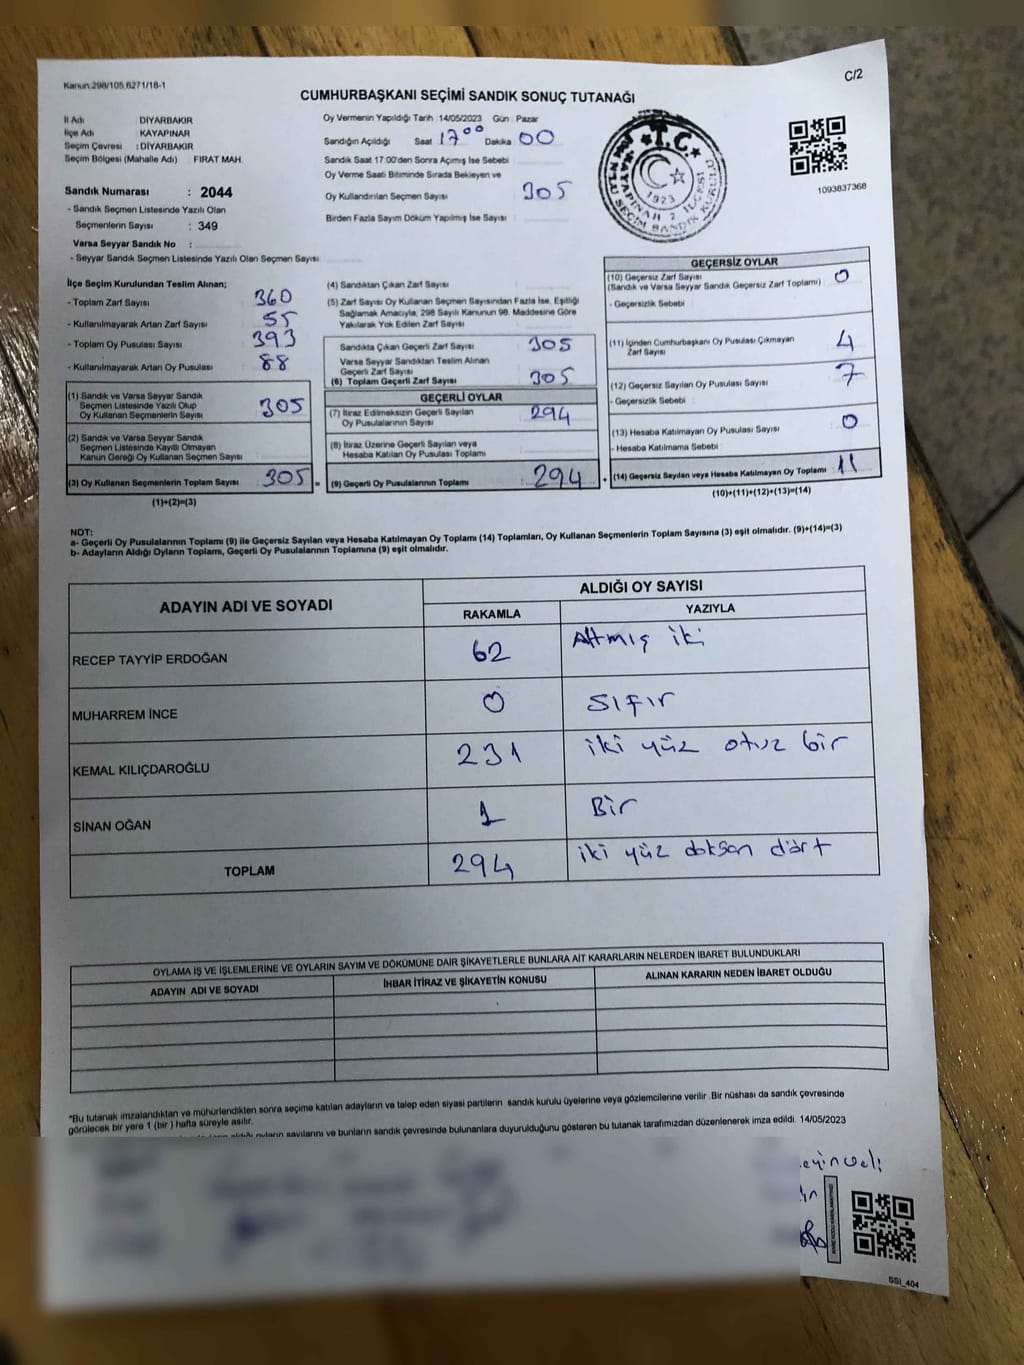 Kanun:298/105,6271/18-1
C/2
CUMHURBAŞKANI SEÇİMİ SANDIK SONUÇ TUTANAĞI
İl Adı : DİYARBAKIR
İlçe Adı : KAYAPINAR
Seçim Çevresi : DİYARBAKIR
Seçim Bölgesi (Mahalle Adı) FIRAT MAH.
Sandık Numarası : 2044
- Sandık Seçmen Listesinde Yazılı Olan
Seçmenlerin Sayısı : 349
Varsa Seyyar Sandık No :
- Seyyar Sandık Seçmen Listesinde Yazılı Olan Seçmen Sayısı
Oy Vermenin Yapıldığı Tarih :14/05/2023 Gün : Pazar
Sandığın Açıldığı Saat 17:00 Dakika 00
Sandık Saat 17:00'den Sonra Açımış İse Sebebi
Oy Verme Saati Bitiminde Sırada Bekleyen ve
Oy Kullandırılan Seçmen Sayısı 305
Birden Fazla Sayım Döküm Yapılmış İse Sayısı
T.C.
1923
KAYAPINAR 2. İLÇESİ
SEÇİM SANDIK KURULU
1093837368
İlçe Seçim Kurulundan Teslim Alınan;
- Toplam Zarf Sayısı 360
- Kullanılmayarak Artan Zarf Sayısı 55
- Toplam Oy Pusulası Sayısı 393
- Kullanılmayarak Artan Oy Pusulası 88
(1) Sandık ve Varsa Seyyar Sandık
Seçmen Listesinde Yazılı Olup
Oy Kullanan Seçmenlerin Sayısı 305
(2) Sandık ve Varsa Seyyar Sandık
Seçmen Listesinde Kayıtlı Olmayan
Kanun Gereği Oy Kullanan Seçmen Sayısı
(3) Oy Kullanan Seçmenlerin Toplam Sayısı 305 =
(1)+(2)=(3)
(4) Sandıktan Çıkan Zarf Sayısı
(5) Zarf Sayısı Oy Kullanan Seçmen Sayısından Fazla İse, Eşitliği
Sağlamak Amacıyla, 298 Sayılı Kanunun 98. Maddesine Göre
Yakılarak Yok Edilen Zarf Sayısı
Sandıkta Çıkan Geçerli Zarf Sayısı 305
Varsa Seyyar Sandıktan Teslim Alınan
Geçerli Zarf Sayısı
(6) Toplam Geçerli Zarf Sayısı 305
GEÇERLİ OYLAR
(7) İtiraz Edilmeksizin Geçerli Sayılan
Oy Pusulalarının Sayısı 294
(8) İtiraz Üzerine Geçerli Sayılan veya
Hesaba Katılan Oy Pusulası Toplamı
(9) Geçerli Oy Pusulalarının Toplamı 294 +
GEÇERSİZ OYLAR
(10) Geçersiz Zarf Sayısı 0
(Sandık ve Varsa Seyyar Sandık Geçersiz Zarf Toplamı)
- Geçersizlik Sebebi
(11) İçinden Cumhurbaşkanı Oy Pusulası Çıkmayan
Zarf Sayısı 4
(12) Geçersiz Sayılan Oy Pusulası Sayısı 7
- Geçersizlik Sebebi
(13) Hesaba Katılmayan Oy Pusulası Sayısı 0
- Hesaba Katılmama Sebebi
(14) Geçersiz Sayılan veya Hesaba Katılmayan Oy Toplamı 11
(10)+(11)+(12)+(13)=(14)
NOT:
a- Geçerli Oy Pusulalarının Toplamı (9) ile Geçersiz Sayılan veya Hesaba Katılmayan Oy Toplamı (14) Toplamları, Oy Kullanan Seçmenlerin Toplam Sayısına (3) eşit olmalıdır. (9)+(14)=(3)
b- Adayların Aldığı Oyların Toplamı, Geçerli Oy Pusulalarının Toplamına (9) eşit olmalıdır.
ADAYIN ADI VE SOYADI
ALDIĞI OY SAYISI
RAKAMLA YAZIYLA
RECEP TAYYİP ERDOĞAN 62 Altmış iki
MUHARREM İNCE 0 sıfır
KEMAL KILIÇDAROĞLU 231 iki yüz otuz bir
SİNAN OĞAN 1 Bir
TOPLAM 294 iki yüz doksan dört
OYLAMA İŞ VE İŞLEMLERİNE VE OYLARIN SAYIM VE DÖKÜMÜNE DAİR ŞİKAYETLERLE BUNLARA AİT KARARLARIN NELERDEN İBARET BULUNDUKLARI
ADAYIN ADI VE SOYADI İHBAR İTİRAZ VE ŞİKAYETİN KONUSU ALINAN KARARIN NEDEN İBARET OLDUĞU
*Bu tutanak imzalandıktan ve mühürlendikten sonra seçime katılan adayların ve talep eden siyasi partilerin sandık kurulu üyelerine veya gözlemcilerine verilir. Bir nüshası da sandık çevresinde
görülecek bir yere 1 (bir ) hafta süreyle asılır.
oyların sayılarını ve bunların sandık çevresinde bulunanlara duyurulduğunu gösteren bu tutanak tarafımızdan düzenlenerek imza edildi. 14/05/2023
SSI_404